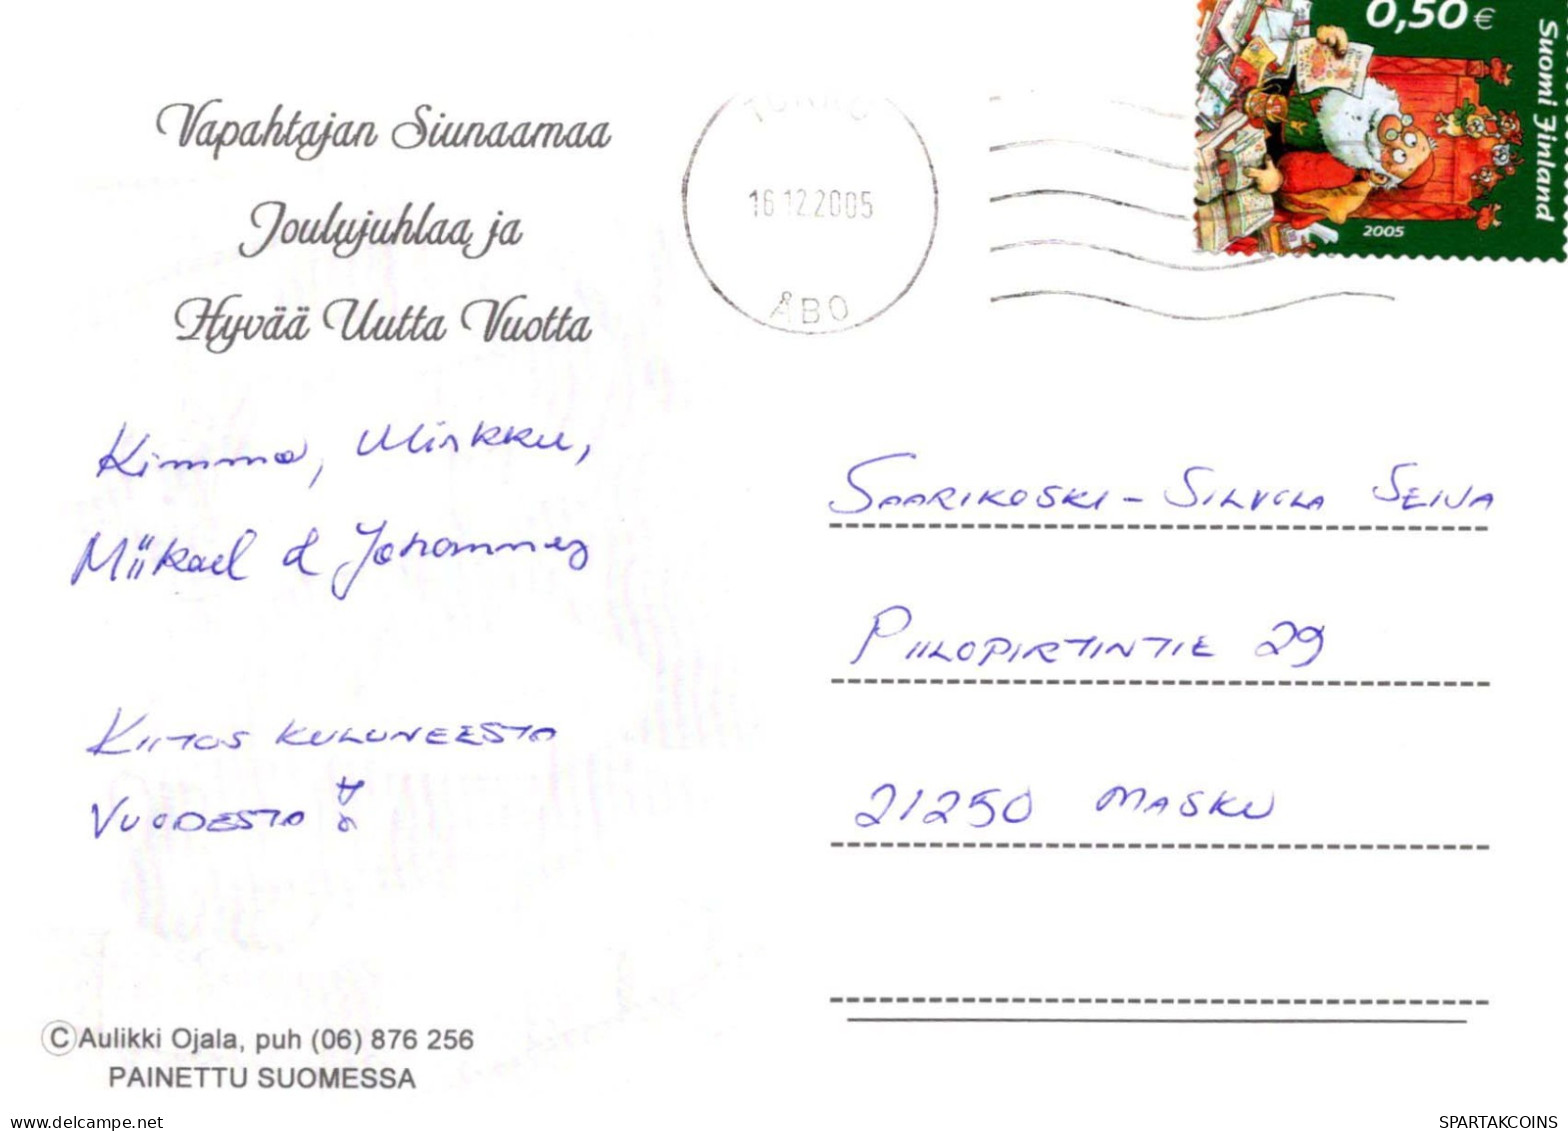 0,50 €
Suomi Finland
2005
Vapahtajan Siunaamaa
Joulujuhlaa ja
Hyvää Uutta Vuotta
TURKU
16.12.2005
ÅBO
Kimmo, Mirkku,
Miikael & Johannes
KIITOS KULUNEESTA
VUODESTA
SAARIKOSKI-SILVOLA SEIJA
PIILOPIRTINTIE 29
21250 MASKU
© Aulikki Ojala, puh (06) 876 256
PAINETTU SUOMESSA
www.delcampe.net
SPARTAKCOINS